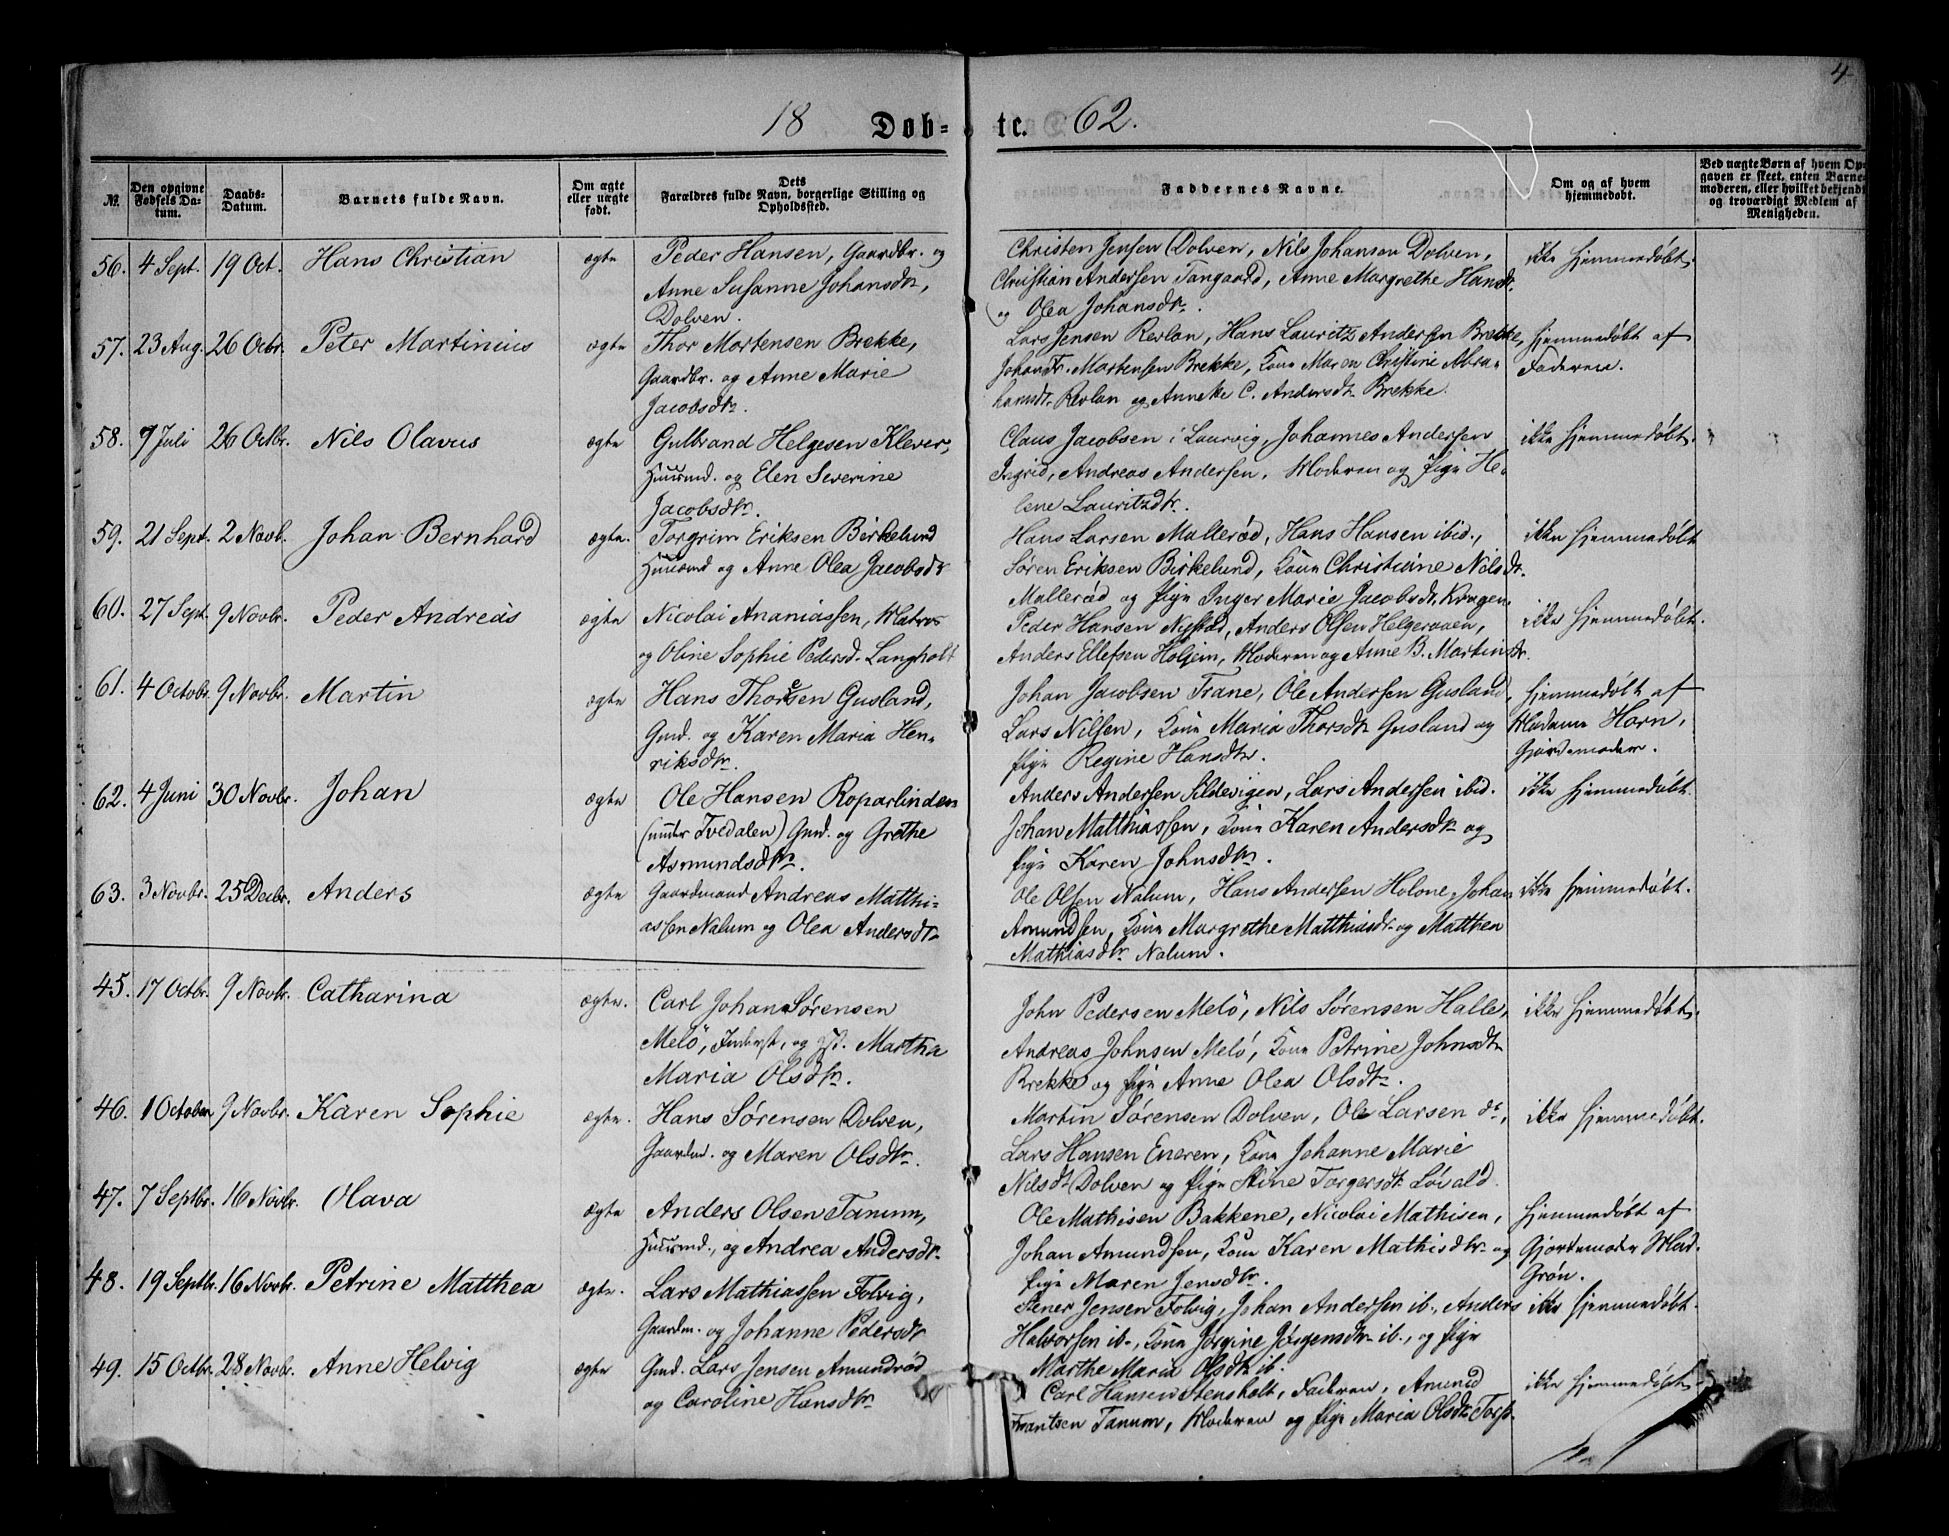 4
18 Døb-
te. 62.
№.
Den opgivne Fødsels Datum.
Daabs-Datum.
Barnets fulde Navn.
Om ægte eller uægte født.
Dets Forældres fulde Navn, borgerlige Stilling og Opholdssted.
Faddernes Navne.
Om og af hvem hjemmedøbt.
Ved uægte Børn af hvem Opgaven er skeet, enten Barnemoderen, eller hvilket bekjendt og troværdigt Medlem af Menigheden.
56. 4 Sept. 19 Oct. Hans Christian ægte Peder Hansen, Gaardbr. og
Anne Susanne Johansdtr,
Dolven.
Christen Jensen Dolven, Nils Johansen Dolven,
Christian Andersen Tangaard, Anne Margrethe Hansdtr.
og Olea Johansdtr.
ikke hjemmedøbt.
57. 23 Aug. 26 Octbr. Peter Martinius ægte Thor Mortensen Brekke,
Gaardbr. og Anne Marie
Jacobsdtr.
Lars Jensen Revlan, Hans Lauritz Andersen Brekke,
Johan Fr. Martensen Brekke, Kone Maren Christine Abra-
hamsdtr. Revlan og Anneke C. Andersdtr. Brekke.
hjemmedøbt af
Faderen.
58. 7 Juli 26 Octbr. Nils Olavus ægte Gulbrand Helgesen Klever,
Huusmd. og Elen Severine
Jacobsdtr.
Claus Jacobsen i Laurvig, Johannes Andersen
Ingrid, Andreas Andersen, Moderen og pige He-
lene Lauritzdtr.
ikke hjemmedøbt.
59. 21 Sept. 2 Novb. Johan Bernhard ægte. Torgrim Eriksen Birkelund
Huusmd og Anne Olea Jacobsdtr
Hans Larsen Mallerød, Hans Hansen ibid.,
Søren Eriksen Birkelund, Kone Christine Nilsdtr.
Mallerød og pige Inger Marie Jacobsdt. Krogen.
ikke hjemmedøbt
60. 27 Sept. 9 Novbr. Peder Andreas ægte Nicolai Ananiassen, Matros
og Oline Sophie Pedersd. Langholt
Peder Hansen Nystad, Anders Olsen Helgeroaen,
Anders Ellefsen Holjem, Moderen og Anne B. Martinsdtr.
ikke hjemmedøbt.
61. 4 Octobr. 9 Novbr. Martin ægte Hans Thorsen Gusland,
Gmd. og Karen Maria Hen-
riksdtr.
Johan Jacobsen Trane, Ole Andersen Gusland,
Lars Nilsen, Kone Maria Thorsdtr Gusland og
pige Regine Hansdtr.
hjemmedøbt af
Madame Horn,
Gjordemoder.
62. 4 Juni 30 Novbr. Johan ægte Ole Hansen Roparlinden
(under Tvedalen) Gmd. og Grethe
Asmundsdtr.
Anders Andersen Sildevigen, Lars Andersen ibid.
Johan Matthiassen, Kone Karen Andersdtr og
pige Karen Johnsdtr.
ikke hjemmedøbt.
63. 3 Novbr. 25 Decbr. Anders ægte Gaardmand Andreas Matthi-
assen Nalum og Olea Andersdtr
Ole Olsen Nalum, Hans Andersen Holone, Johan
Amundsen, Kone Margrethe Matthiasdtr og Matthea
Mathiasdtr. Nalum.
ikke hjemmedøbt.
45. 17 Octbr. 9 Novbr. Catharina ægte. Carl Johan Sørensen
Melø, Inderst, og H. Martha
Maria Olsdtr.
John Pedersen Melø, Nils Sørensen Halle,
Andreas Johnsen Melø, Kone Petrine Johnsdtr
Brekke og pige Anne Olea Olsdtr.
ikke hjemmedøbt.
46. 1 October 9 Novbr. Karen Sophie ægte. Hans Sørensen Dolven,
Gaardm. og Maren Olsdtr.
Martin Sørensen Dolven, Ole Larsen do,
Lars Hansen Eneren, Kone Johanne Marie
Nilsdtr Dolven og pige Stine Torgersdtr Løvald.
ikke hjemmedøbt.
47. 7 Septbr. 16 Novbr. Olava ægte Anders Olsen Tanum,
Huusmd., og Andrea Andersdtr.
Ole Mathisen Bakkene, Nicolai Mathisen,
Johan Amundsen, Kone Karen Mathisdtr. og
pige Maren Jensdtr.
hjemmedøbt af
Gjordemoder Mad.
Grøn.
48. 19 Septbr. 16 Novbr. Petrine Matthea ægte. Lars Mathiassen Folvig,
Gaardm. og Johanne Pedersdtr
Stener Jensen Folvig, Johan Andersen ib., Anders
Halvorsen ib., Kone Jørgine Jørgensdtr ib., og pige
Marthe Maria Olsdtr ib.
ikke hjemmedøbt.
49. 15 Octbr. 28 Novbr. Anne Helvig ægte Gmd. Lars Jensen Amundrød
og Caroline Hansdtr.
Carl Hansen Stensholt, Faderen, Amund
Frantsen Tanum, Moderen og pige Maria Olsdtr Torp.
ikke hjemmedøbt.